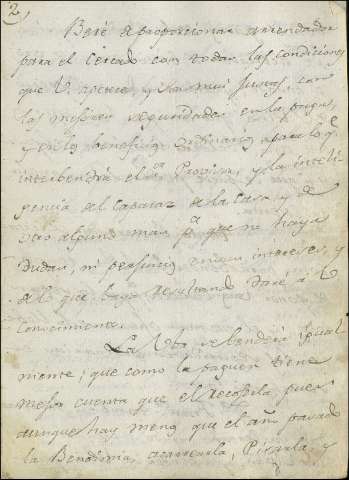 2,
Veré de proporcionar arrendador
para el Cercado con todas las condiciones
que V. apetece, y son mui justas, con
las mejores seguridades en la paga,
y en los beneficios ordinarios, para lo q.e
interbendrá el S.or Provisor, y la inteli
gencia del Capataz de la Casa, y de
otro alguno mas, p.a que no haya
dudas, ni perjuicio en sus intereses, y
de lo que baya resultando daré à V.
conocimiento.
La Uba se benderá igual
mente, que como la paguen tiene
mejor cuenta que el recojerla, pues
aunque hay menos que el año pasado
la Bendimia, acarrearla, Pisarla, y